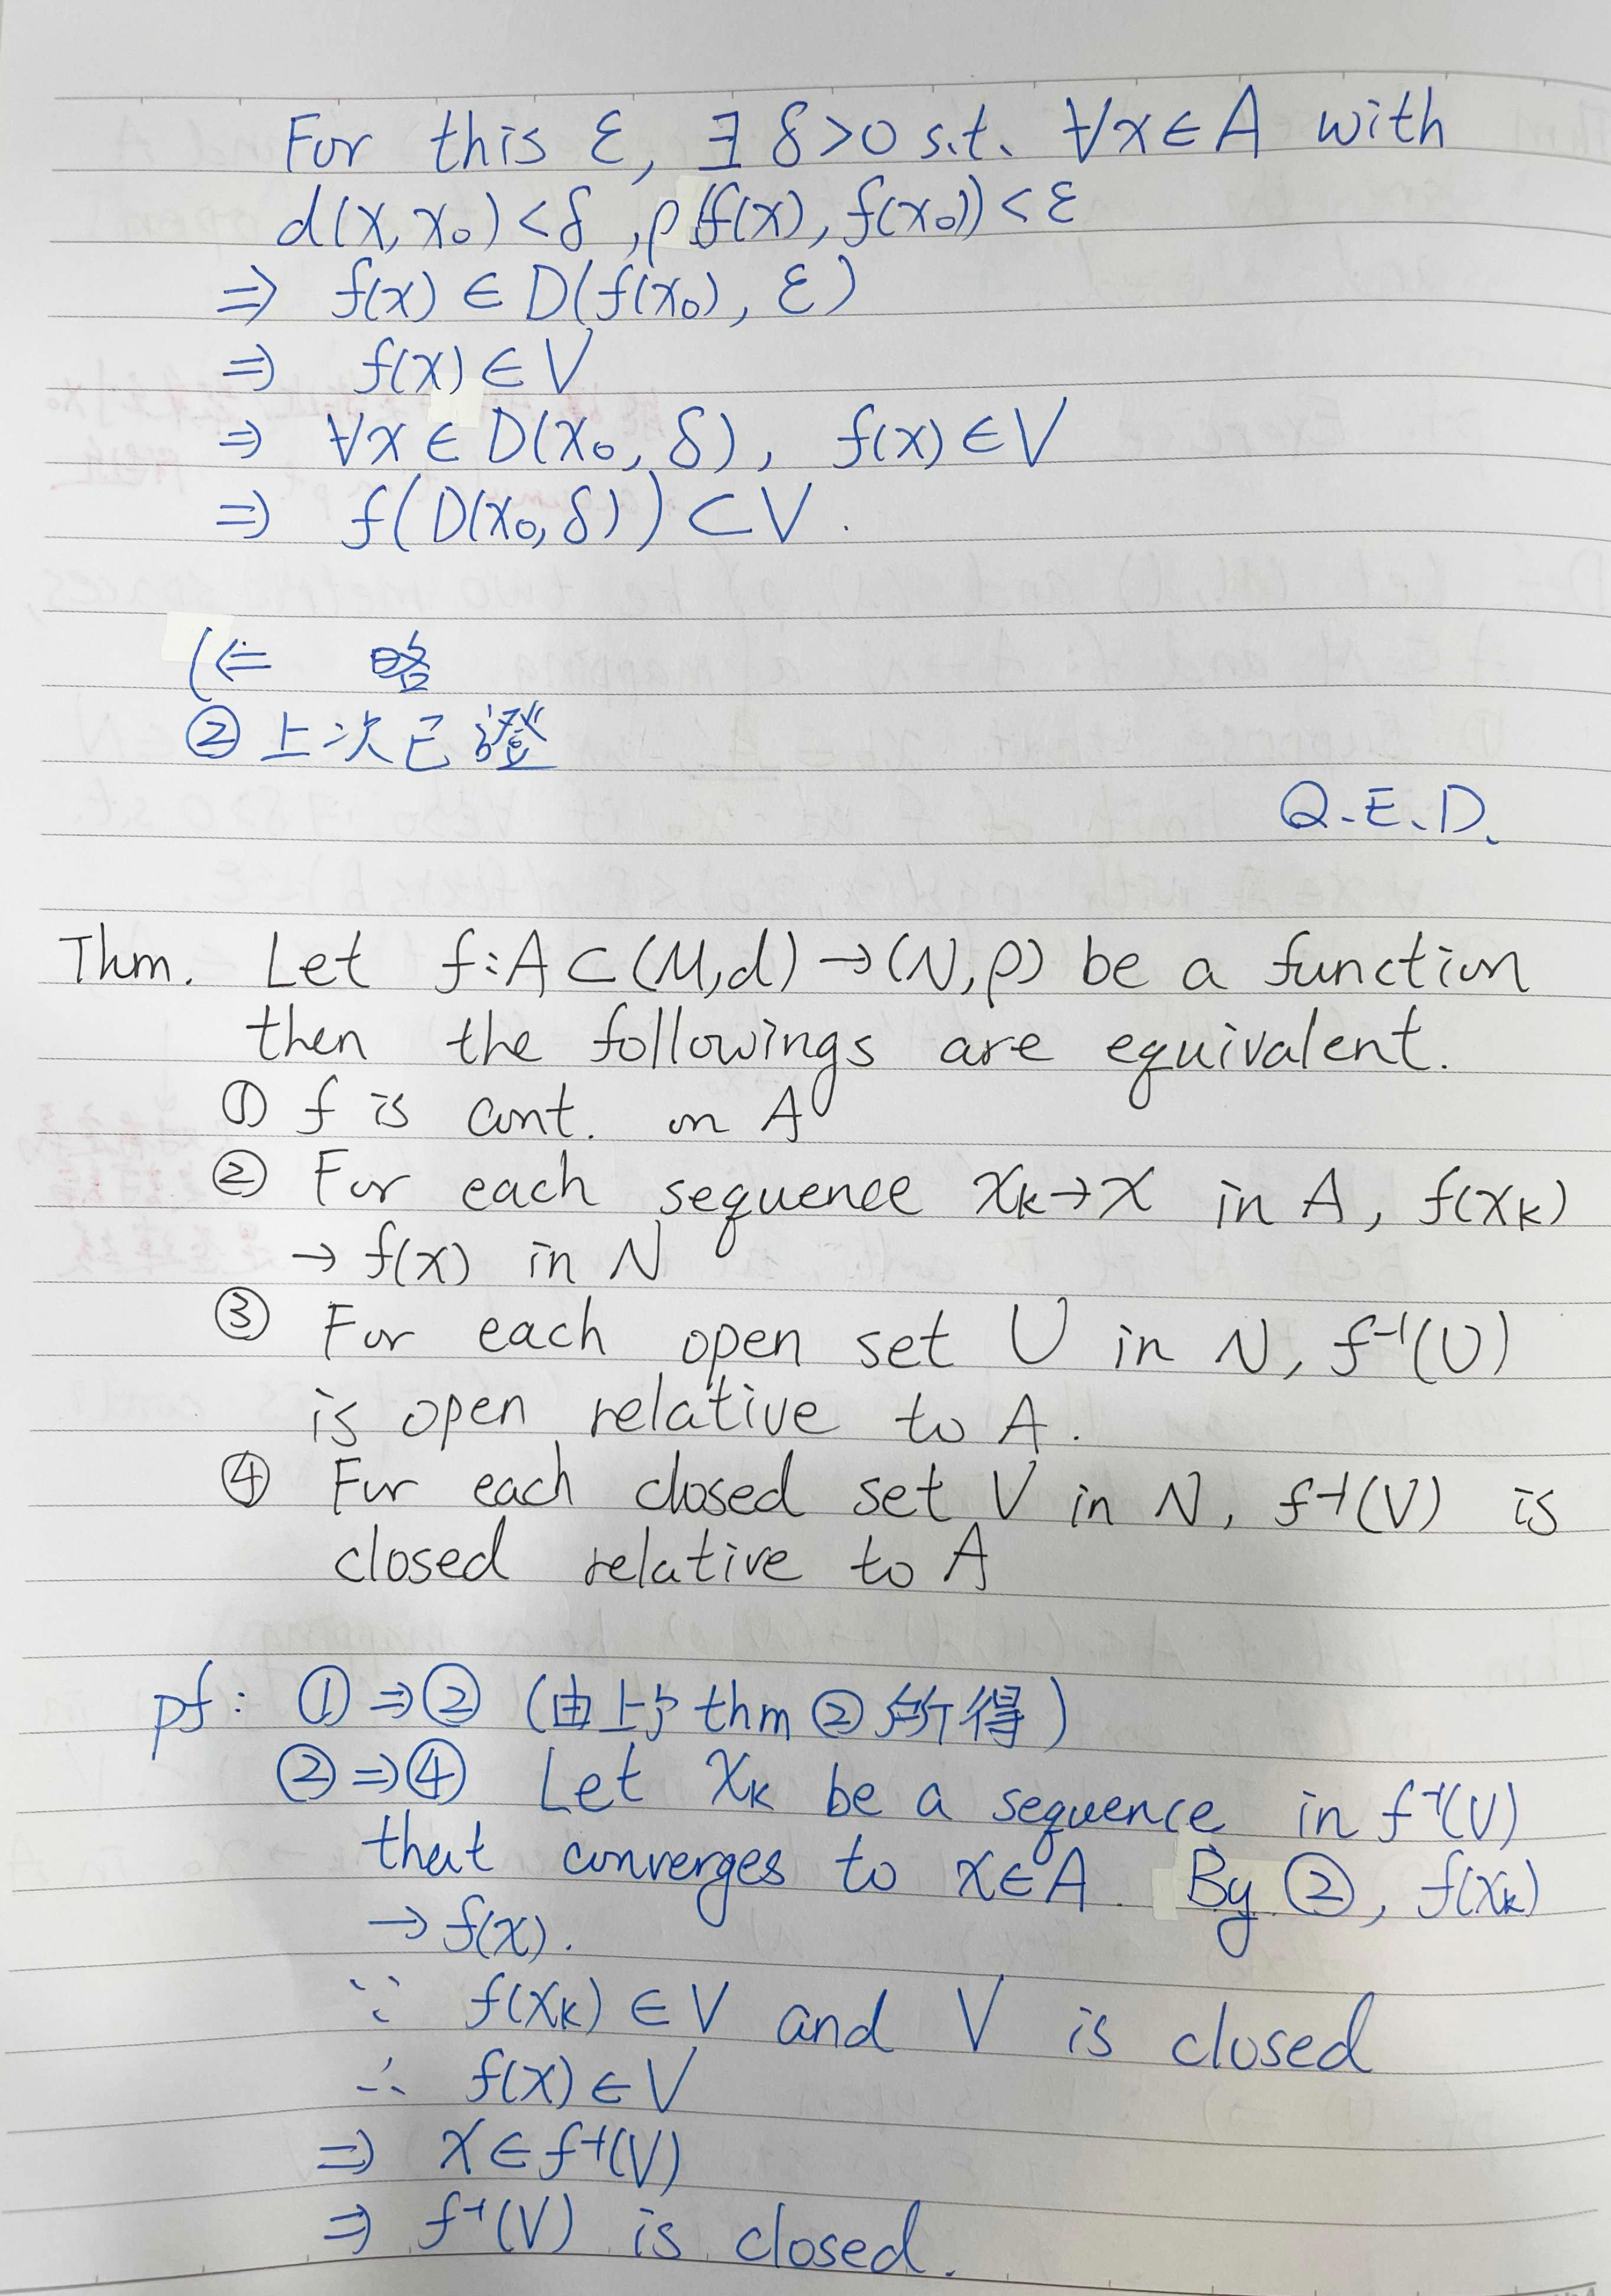 For this ε, ∃ δ>0 s.t. ∀x∈A with
d(x, x₀)<δ, ρ(f(x), f(x₀))<ε
⇒ f(x) ∈ D(f(x₀), ε)
⇒ f(x) ∈ V
⇒ ∀x ∈ D(x₀, δ), f(x) ∈ V
⇒ f(D(x₀, δ)) ⊂ V.
(⇐ 略
② 上次已證
Q.E.D.
Thm. Let f:A⊂(M,d)→(N,ρ) be a function
then the followings are equivalent.
① f is cont. on A
② For each sequence xₖ→x in A, f(xₖ)
→ f(x) in N
③ For each open set U in N, f⁻¹(U)
is open relative to A.
④ For each closed set V in N, f⁻¹(V) is
closed relative to A
pf: ①⇒② (由上 thm ② 所得)
②⇒④ Let xₖ be a sequence in f⁻¹(V)
that converges to x∈A. By ②, f(xₖ)
→ f(x).
∵ f(xₖ) ∈ V and V is closed
∴ f(x) ∈ V
⇒ x ∈ f⁻¹(V)
⇒ f⁻¹(V) is closed.